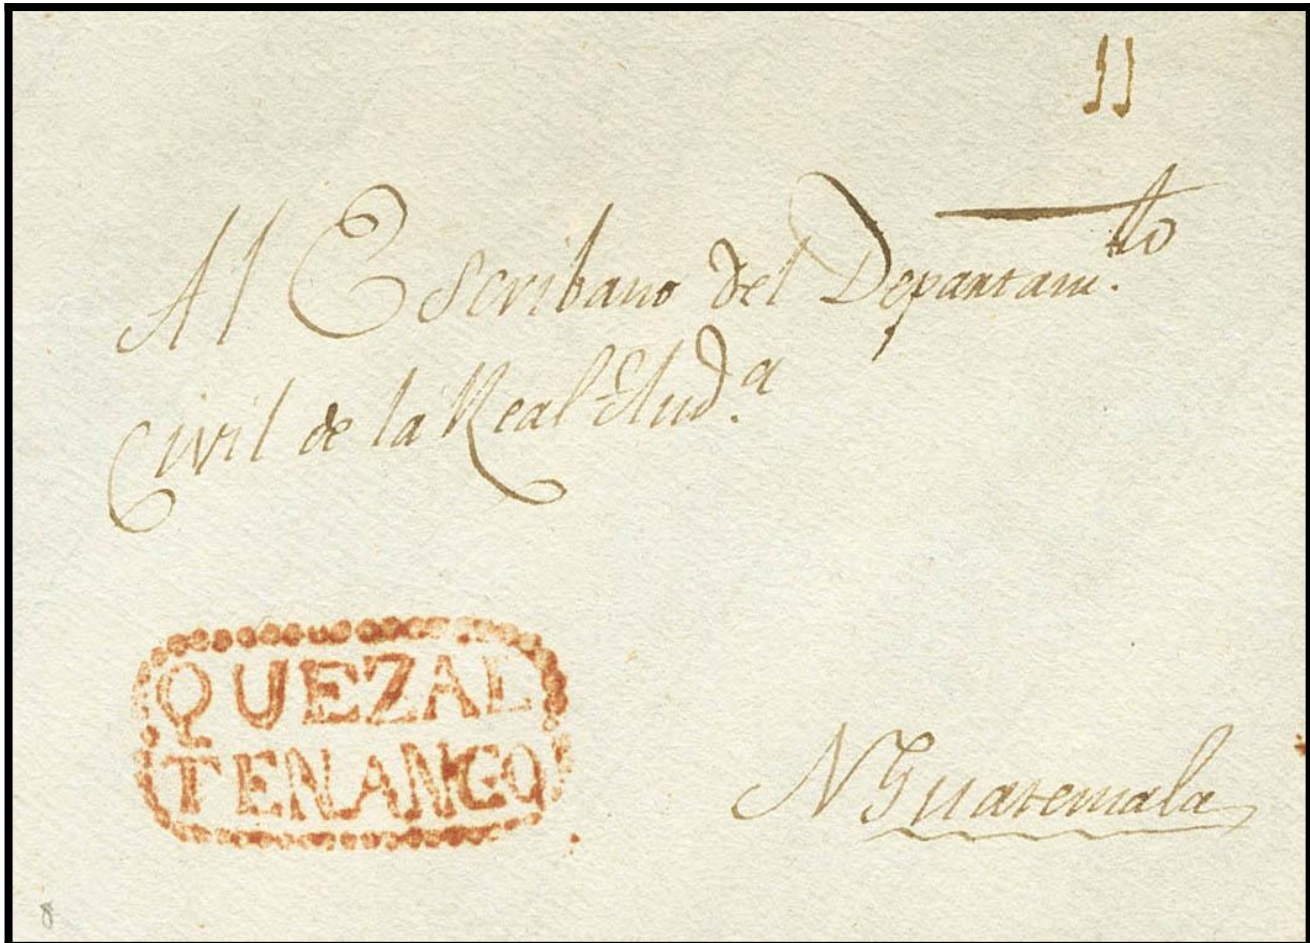 11
Al Escribano del Departam.to
Civil de la Real Aud.a
QUEZAL
TENANGO
N Guatemala
8